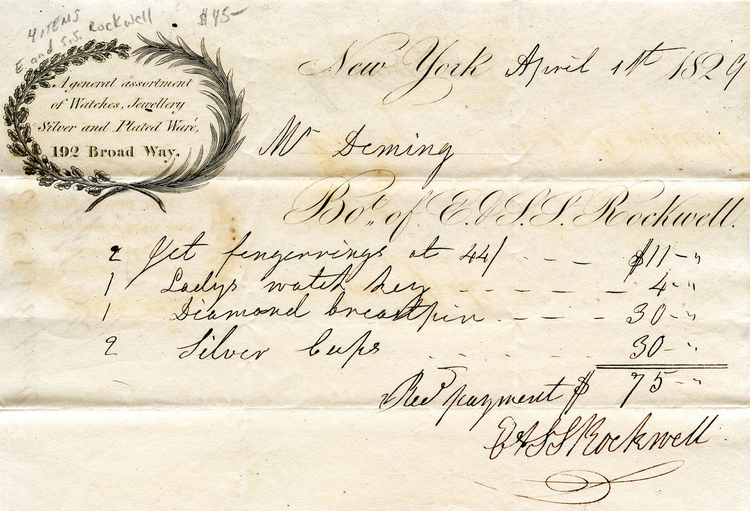 4 ITEMS $45—
E and S.S. Rockwell
A general assortment
of Watches, Jewellery
Silver and Plated Ware,
192 Broad Way.
New York April 11th 1829
Mr Deming
Bot. of E. & S.S. Rockwell.
2 Jet fengerrings at 44/ - - - - $11 - "
1 Ladys watch key - - - - - - 4 - "
1 Diamond breastpin - - - - - 30 - "
2 Silver Cups - - - - - - 30 - "
Recd payment $ 75 - "
E & SS Rockwell